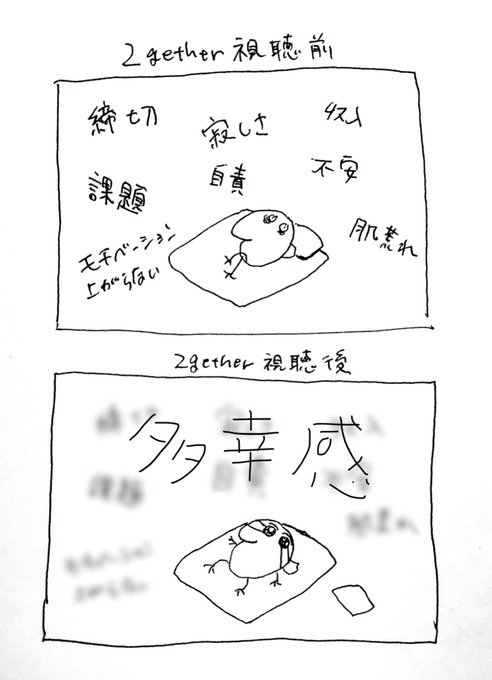 2gether 視聴前
締切
寂しさ
課題
自責
不安
モチベーション
上がらない
肌荒れ
2gether 視聴後
多幸感